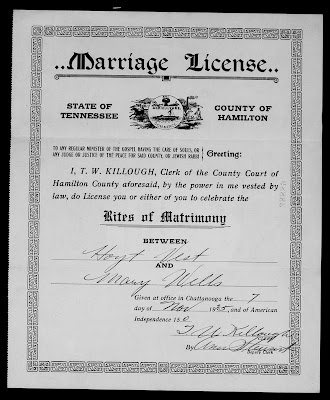 ..Marriage License..
STATE OF
TENNESSEE
COUNTY OF
HAMILTON
TO ANY REGULAR MINISTER OF THE GOSPEL HAVING THE CARE OF SOULS, OR
ANY JUDGE OR JUSTICE OF THE PEACE FOR SAID COUNTY, OR JEWISH RABBI
Greeting:
I, T. W. KILLOUGH, Clerk of the County Court of
Hamilton County aforesaid, by the power in me vested by
law, do License you or either of you to celebrate the
Rites of Matrimony
BETWEEN
Hoyt West
AND
Mary Wells
Given at office in Chattanooga the 7
day of Nov 1925, and of American
Independence 150
T W Killough
By
Deputy Clerk